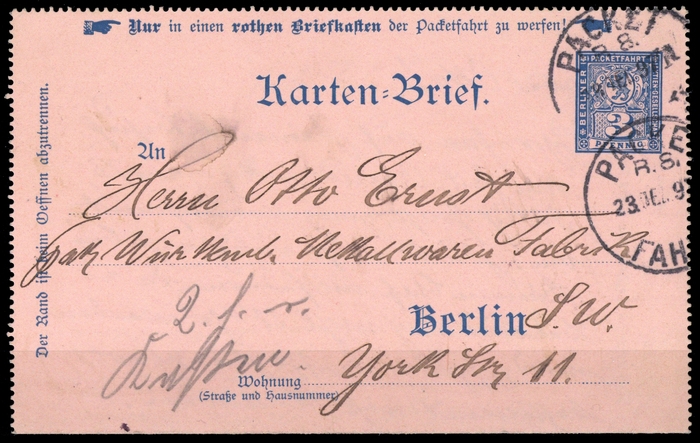 Nur in einen rothen Briefkasten der Packetfahrt zu werfen!
Karten-Brief.
BERLINER PACKETFAHRT
3
PFENNIG
PACKET
R. S.
PACKE
R. S.
23.DEZ.9
FAH
An
Herrn Otto Ernst
Württemb. Metallwaren Fabrik
Berlin S. W.
York Str 11.
Wohnung
(Straße und Hausnummer)
Der Rand ist beim Oeffnen abzutrennen.